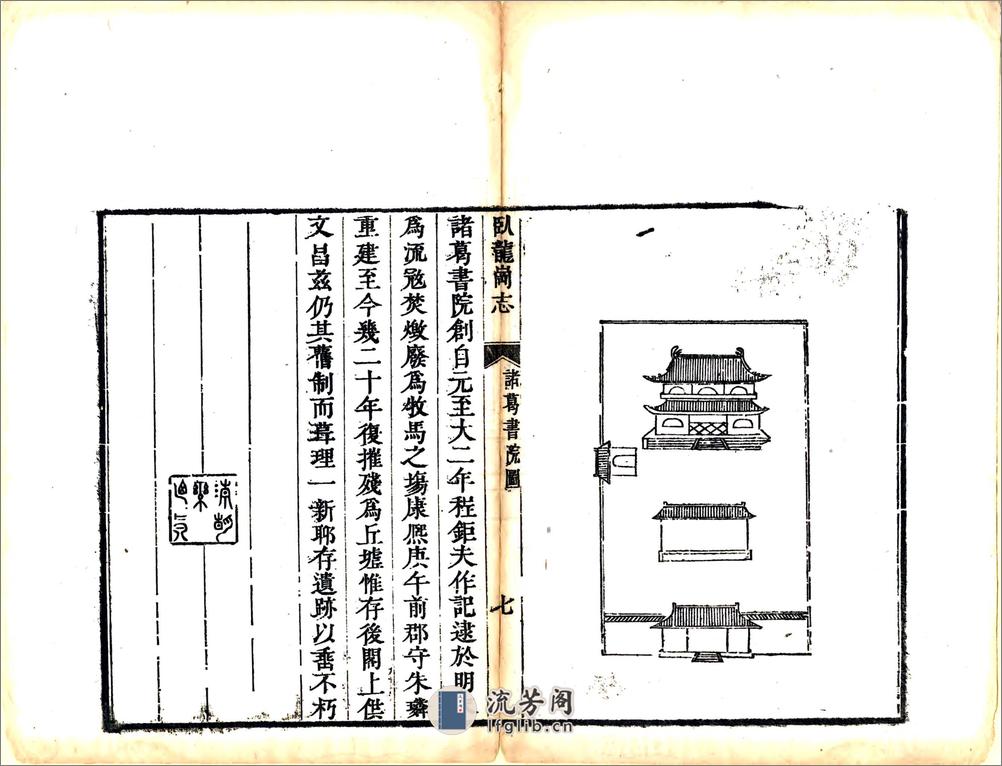 臥龍崗志
諸葛書院圖
七
諸葛書院創自元至大二年程鉅夫作記逮於明
爲流宼焚燬廢爲牧馬之塲康熈庚午前郡守朱璘
重建至今幾二十年復摧殘爲丘墟惟存後閣上供
文昌茲仍其舊制而葺理一新耶存遺跡以垂不朽
流芳阁
lfglib.cn